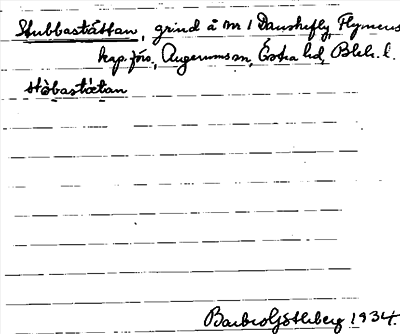 Stubbastättan, grind å m 1 Danskefly, Flymens
kap. förs., Augerums sn, Östra hd, Blek. l.
stòbastætan
Barbro Göthberg 1934.